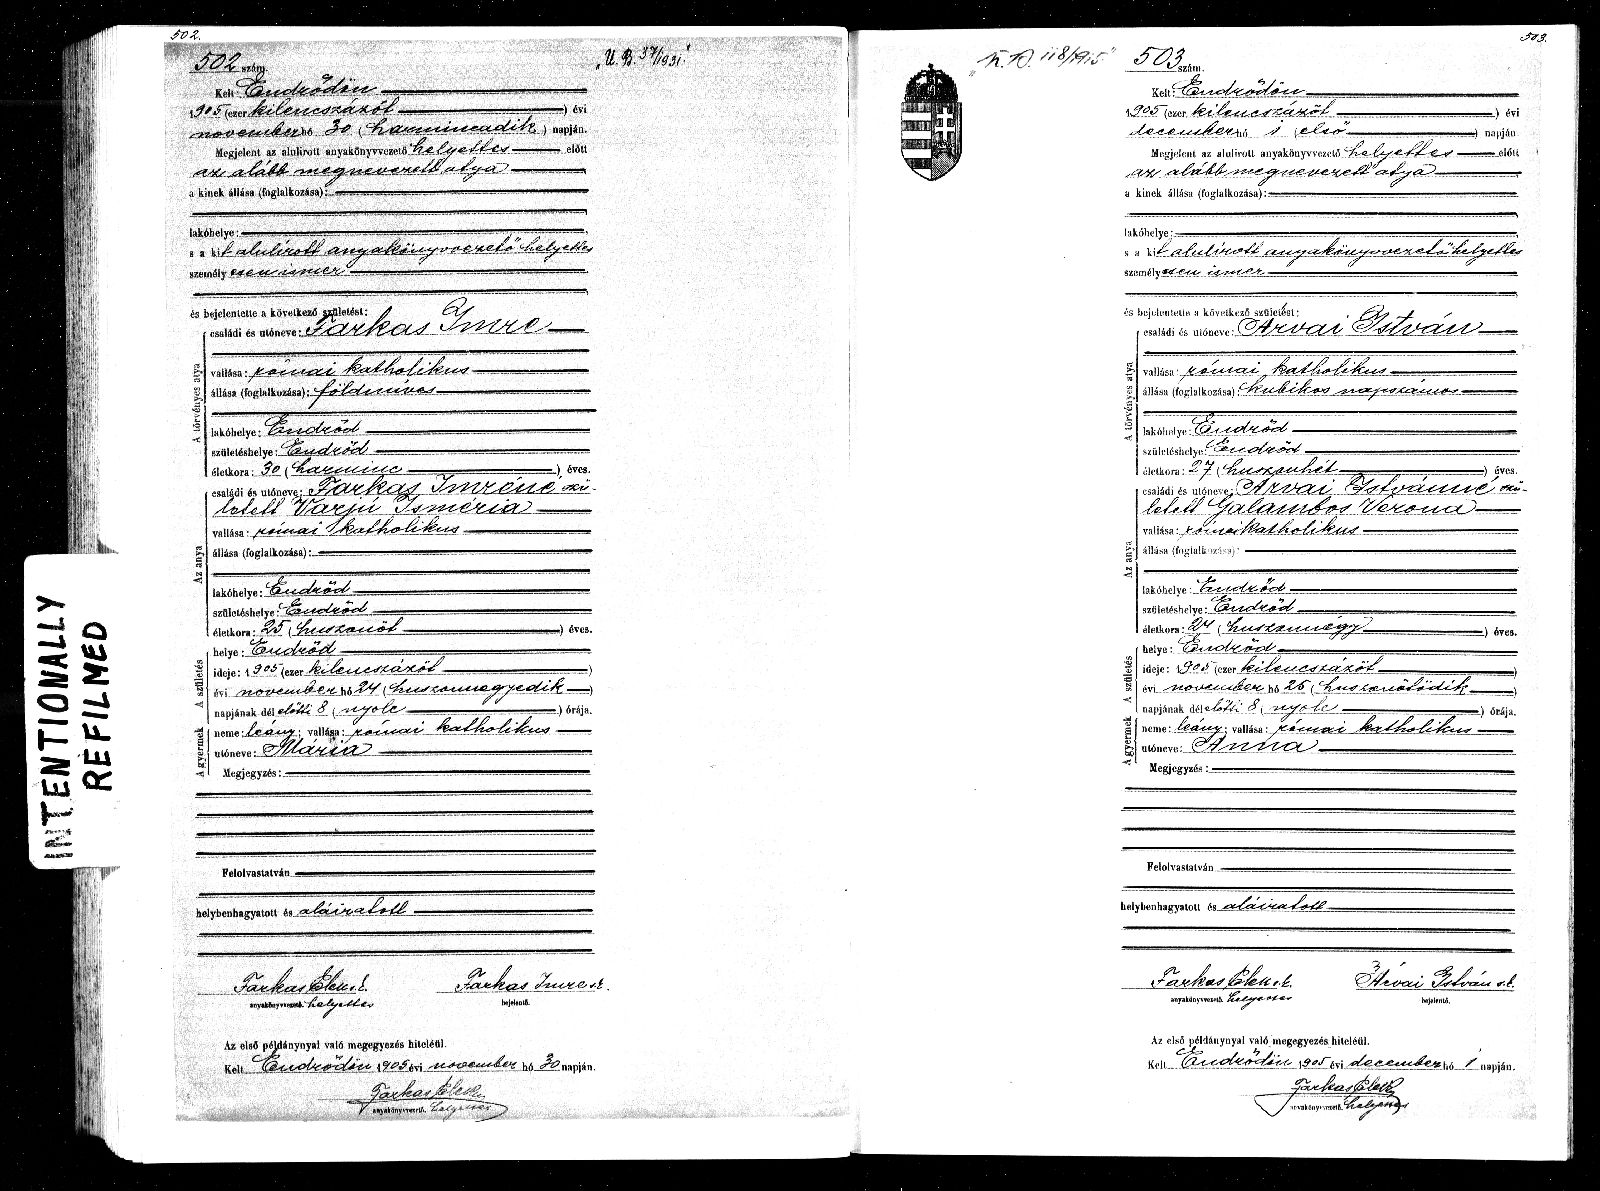 502.
INTENTIONALLY
REFILMED
502 szám.
„U. B. 37/1931."
Kelt Endrődön
1905 (ezer kilencszázöt ) évi
november hó 30 (harmincadik) napján.
Megjelent az alulirott anyakönyvvezető helyettes előtt
az alább megnevezett atya
a kinek állása (foglalkozása):
lakóhelye:
s a kit alulírott anyakönyvvezető helyettes
személyesen ismer
és bejelentette a következő születést:
A törvényes atya
családi és utóneve: Farkas Imre
vallása: római katholikus
állása (foglalkozása): földmíves
lakóhelye: Endrőd
születéshelye: Endrőd
életkora: 30 (harminc ) éves.
Az anya
családi és utóneve: Farkas Imréné szü-
letett Varjú Isméria
vallása: római katholikus
állása (foglalkozása):
lakóhelye: Endrőd
születéshelye: Endrőd
életkora: 25 (huszonöt ) éves.
A születés
helye: Endrőd
ideje: 1905 (ezer kilencszázöt )
évi november hó 24 (huszonnegyedik )
napjának dél előtti 8 (nyolc ) órája.
A gyermek
neme: leány; vallása: római katholikus
utóneve: Mária
Megjegyzés:
Felolvastatván
helybenhagyatott és aláiratott
Farkas Elek s.k. Farkas Imre s.k.
anyakönyvvezető. helyettes bejelentő.
Az első példánynyal való megegyezés hiteléül.
Kelt Endrődön 1905 évi november hó 30 napján.
Farkas Elek
anyakönyvvezető. helyettes
503.
503 szám.
Kelt Endrődön
1905 (ezer kilencszázöt ) évi
december hó 1 (első ) napján
Megjelent az alulirott anyakönyvvezető helyettes előtt
az alább megnevezett atya
a kinek állása (foglalkozása):
lakóhelye:
s a kit alulírott anyakönyvvezető helyettes
személyesen ismer
és bejelentette a következő születést:
A törvényes atya
családi és utóneve: Arvai István
vallása: római katholikus
állása (foglalkozása): kubikos napszámos
lakóhelye: Endrőd
születéshelye: Endrőd
életkora: 27 (huszonhét ) éves.
Az anya
családi és utóneve: Arvai Istvánné szü-
letett Galambos Verona
vallása: római katholikus
állása (foglalkozása):
lakóhelye: Endrőd
születéshelye: Endrőd
életkora: 24 (huszonnégy ) éves.
A születés
helye: Endrőd
ideje: 1905 (ezer kilencszázöt )
évi november hó 25 (huszonötödik )
napjának dél előtti 8 (nyolc ) órája.
A gyermek
neme: leány; vallása: római katholikus
utóneve: Anna
Megjegyzés:
Felolvastatván
helybenhagyatott és aláiratott
Farkas Elek s.k. Árvai István s.k.
anyakönyvvezető. helyettes bejelentő.
Az első példánynyal való megegyezés hiteléül.
Kelt Endrődön 1905 évi december hó 1 napján.
Farkas Elek
anyakönyvvezető. helyettes